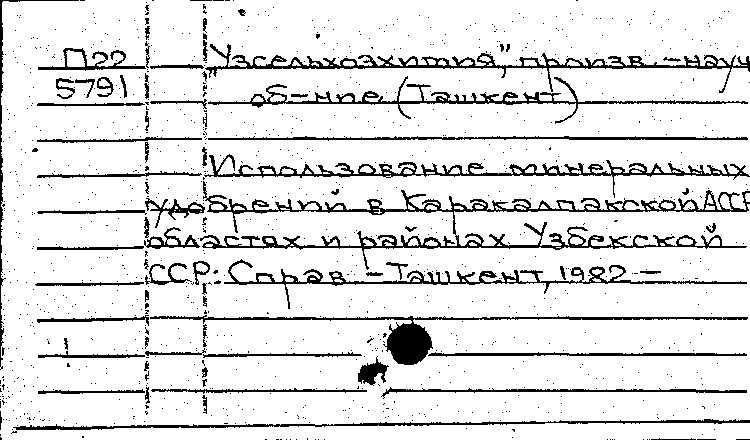 П22 „Узсельхозхимия,” произв.-науч
5791 об-ние (Ташкент)
Использование минеральных
удобрений в Каракалпакской АССР
областях и районах Узбекской
ССР: Справ - Ташкент, 1982 -